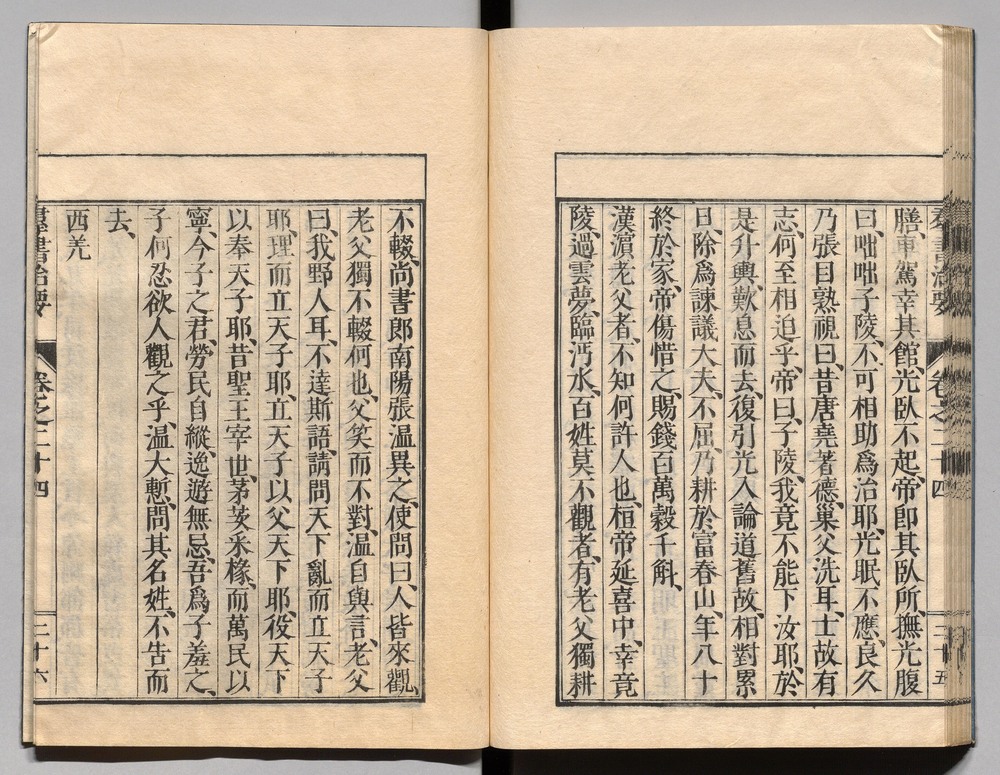 膳車駕幸其館、光臥不起、帝即其臥所、撫光腹
曰、咄咄子陵、不可相助爲治耶、光眠不應、良久
乃張目熟視曰、昔唐堯著德、巢父洗耳、士故有
志、何至相迫乎、帝曰、子陵、我竟不能下汝耶、於
是升輿、歎息而去、復引光入論道舊故、相對累
日、除爲諫議大夫、不屈、乃耕於富春山、年八十
終於家、帝傷惜之、賜錢百萬穀千斛、
漢濵老父者、不知何許人也、桓帝延喜中、幸竟
陵、過雲夢、臨沔水、百姓莫不觀者、有老父獨耕
不輟、尚書郎南陽張温異之、使問曰、人皆來觀、
老父獨不輟何也、父笑而不對、温自與言、老父
曰、我野人耳、不達斯語、請問天下亂而立天子
耶、理而立天子耶、立天子以父天下耶、役天下
以奉天子耶、昔聖王宰世、茅茨采椽、而萬民以
寧、今子之君、勞民自縱、逸遊無忌、吾爲子羞之、
子何忍欲人觀之乎、温大慙、問其名姓、不告而
去、
西羌
羣書治要
卷之二十四
二十六
羣書治要
卷之二十四
二十五